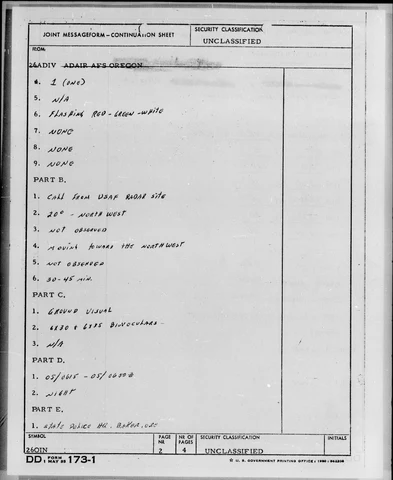 JOINT MESSAGEFORM—CONTINUATION SHEET
SECURITY CLASSIFICATION
UNCLASSIFIED
FROM
26ADIV ADAIR AFS OREGON
4. 1 (ONE)
5. N/A
6. FLASHING RED-GREEN-WHITE
7. NONE
8. NONE
9. NONE
PART B.
1. CALL FROM USAF RADAR SITE
2. 20° - NORTHWEST
3. NOT OBSERVED
4. MOVING TOWARD THE NORTHWEST
5. NOT OBSERVED
6. 30-45 MIN.
PART C.
1. GROUND VISUAL
2. 6X30 & 6X35 BINOCULARS
3. N/A
PART D.
1. 05/0615 - 05/0600
2. NIGHT
PART E.
1. STATE POLICE HQ. BAKER, ORE
SYMBOL
PAGE NR
NR OF PAGES
SECURITY CLASSIFICATION
INITIALS
26OIN
2
4
UNCLASSIFIED
DD FORM 1 MAY 55 173-1
U. S. GOVERNMENT PRINTING OFFICE